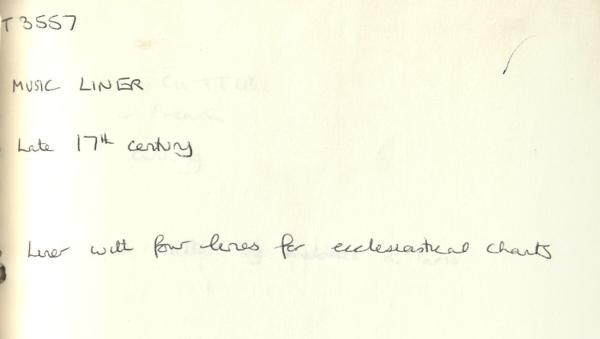 T 3557
MUSIC LINER
Late 17th century
Liner with four lines for ecclesiastical chants